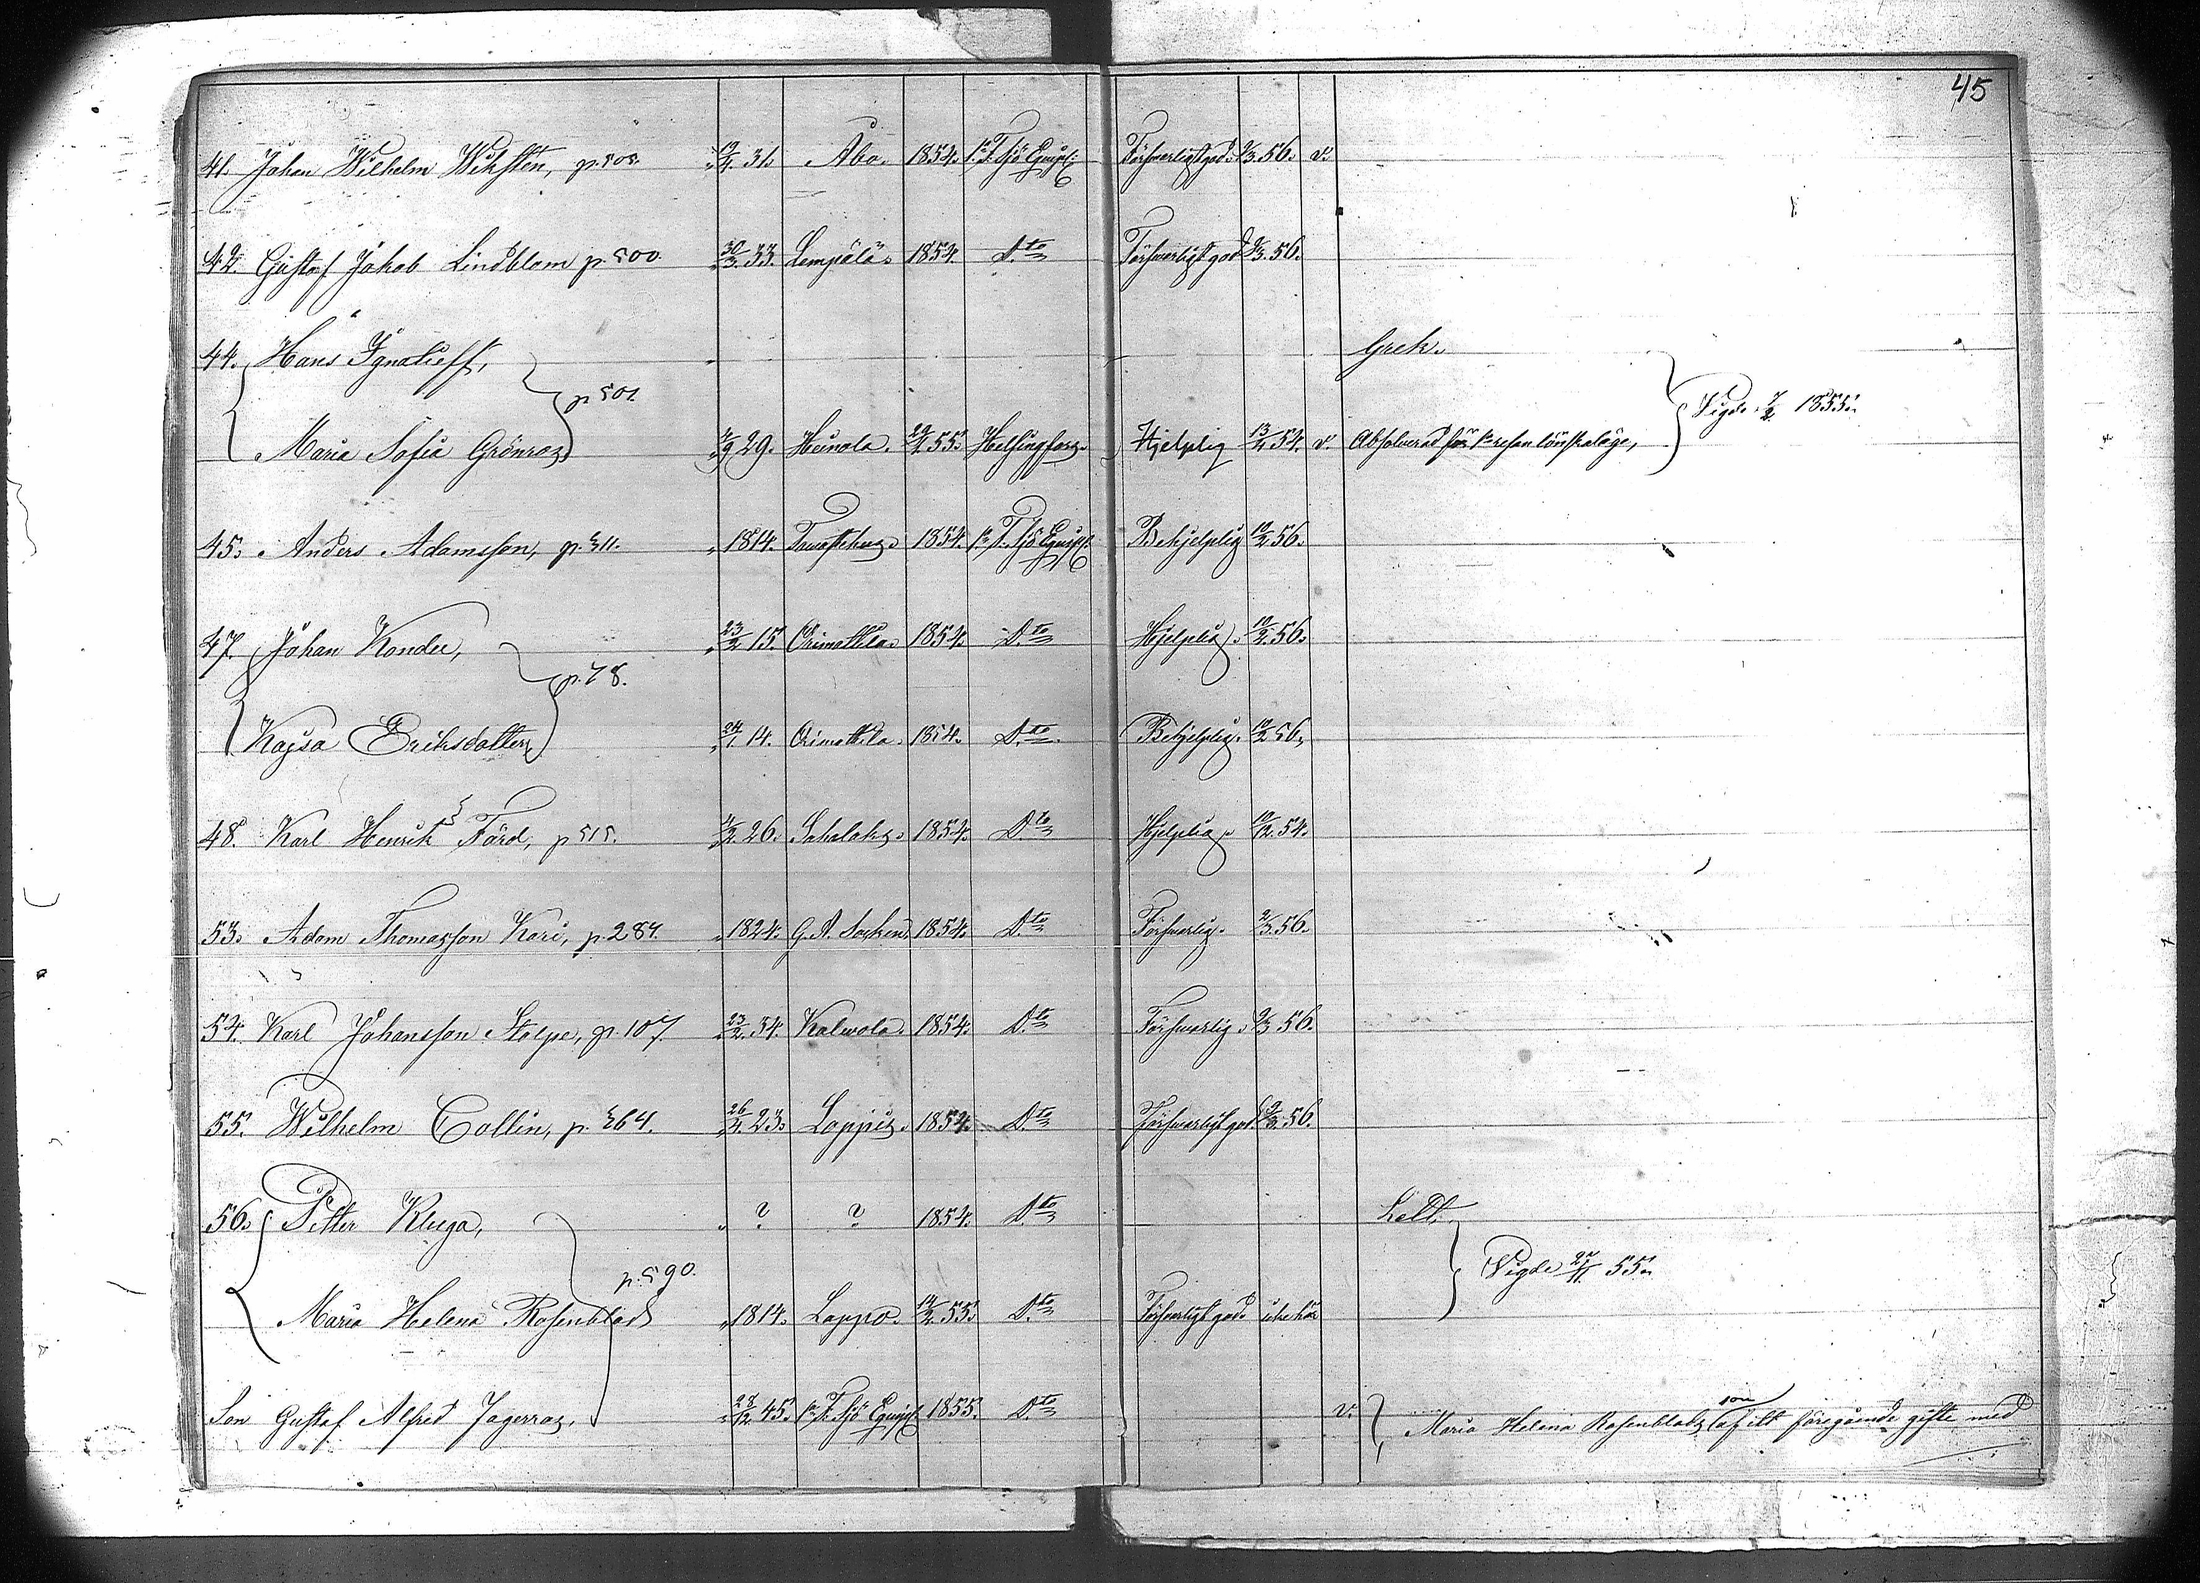 45
41. Johan Wilhelm Wiksten, p. 505. 19/4. 31. Åbo. 1854. 1:a F. Sjö Equip: Försvarligt god. 9/3. 56. v.
42. Gustaf Jakob Lindblom p. 500. 30/3. 33. Lempälä. 1854. D:to Försvarligt god 9/3. 56.
44. Hans Ignatieff, Grek.
p 501. Vigde 7/2 1855.
Maria Sofia Grönroos 4/9 29. Heinola. 29/1. 55. Helsingfors. Hjelplig 13/4. 54. v. Absolverad för 1:a resan lönskaläge,
45. Anders Adamsson, p. 511. 1814. Tavastehus. 1854. 1:a F. Sjö Equip: Behjelplig 10/2 56.
47. Johan Konder, 23/2 15. Orimattila. 1854. D:to Hjelplig. 10/2. 56.
p. 78.
Kajsa Eriksdotter 24/1. 14. Orimattila. 1854. D:to Behjelplig. 10/2 56.
48. Karl Henrik Färd, p 515. 26. Sahalaks. 1854. D:to Hjelplig. 10/12. 54.
53. Adam Thomasson Kari, p. 284. 1824. Socken. 1854. D:to Försvarlig. 2/3. 56.
54. Karl Johansson Stolpe, p. 107. 23/2. 34. Kalvola. 1854. D:to Försvarlig. 9/3 56.
55. Wilhelm Collin, p. 564. 26/4. 23. Loppis. 1854. D:to Försvarligt god 9/3. 56.
56. Petter Kluga, ? ? 1854. D:to Lett.
p. 590. Vigde 27/11. 55.
Maria Helena Rosenblad 1814. Lappo. 14/2. 55. D:to Försvarligt god. icke här
Son Gustaf Alfred Jagerroos, 28/12 45. 1:a F. Sjö Equip: 1855. D:to v. Maria Helena Rosenblads son af ett föregående gifte med